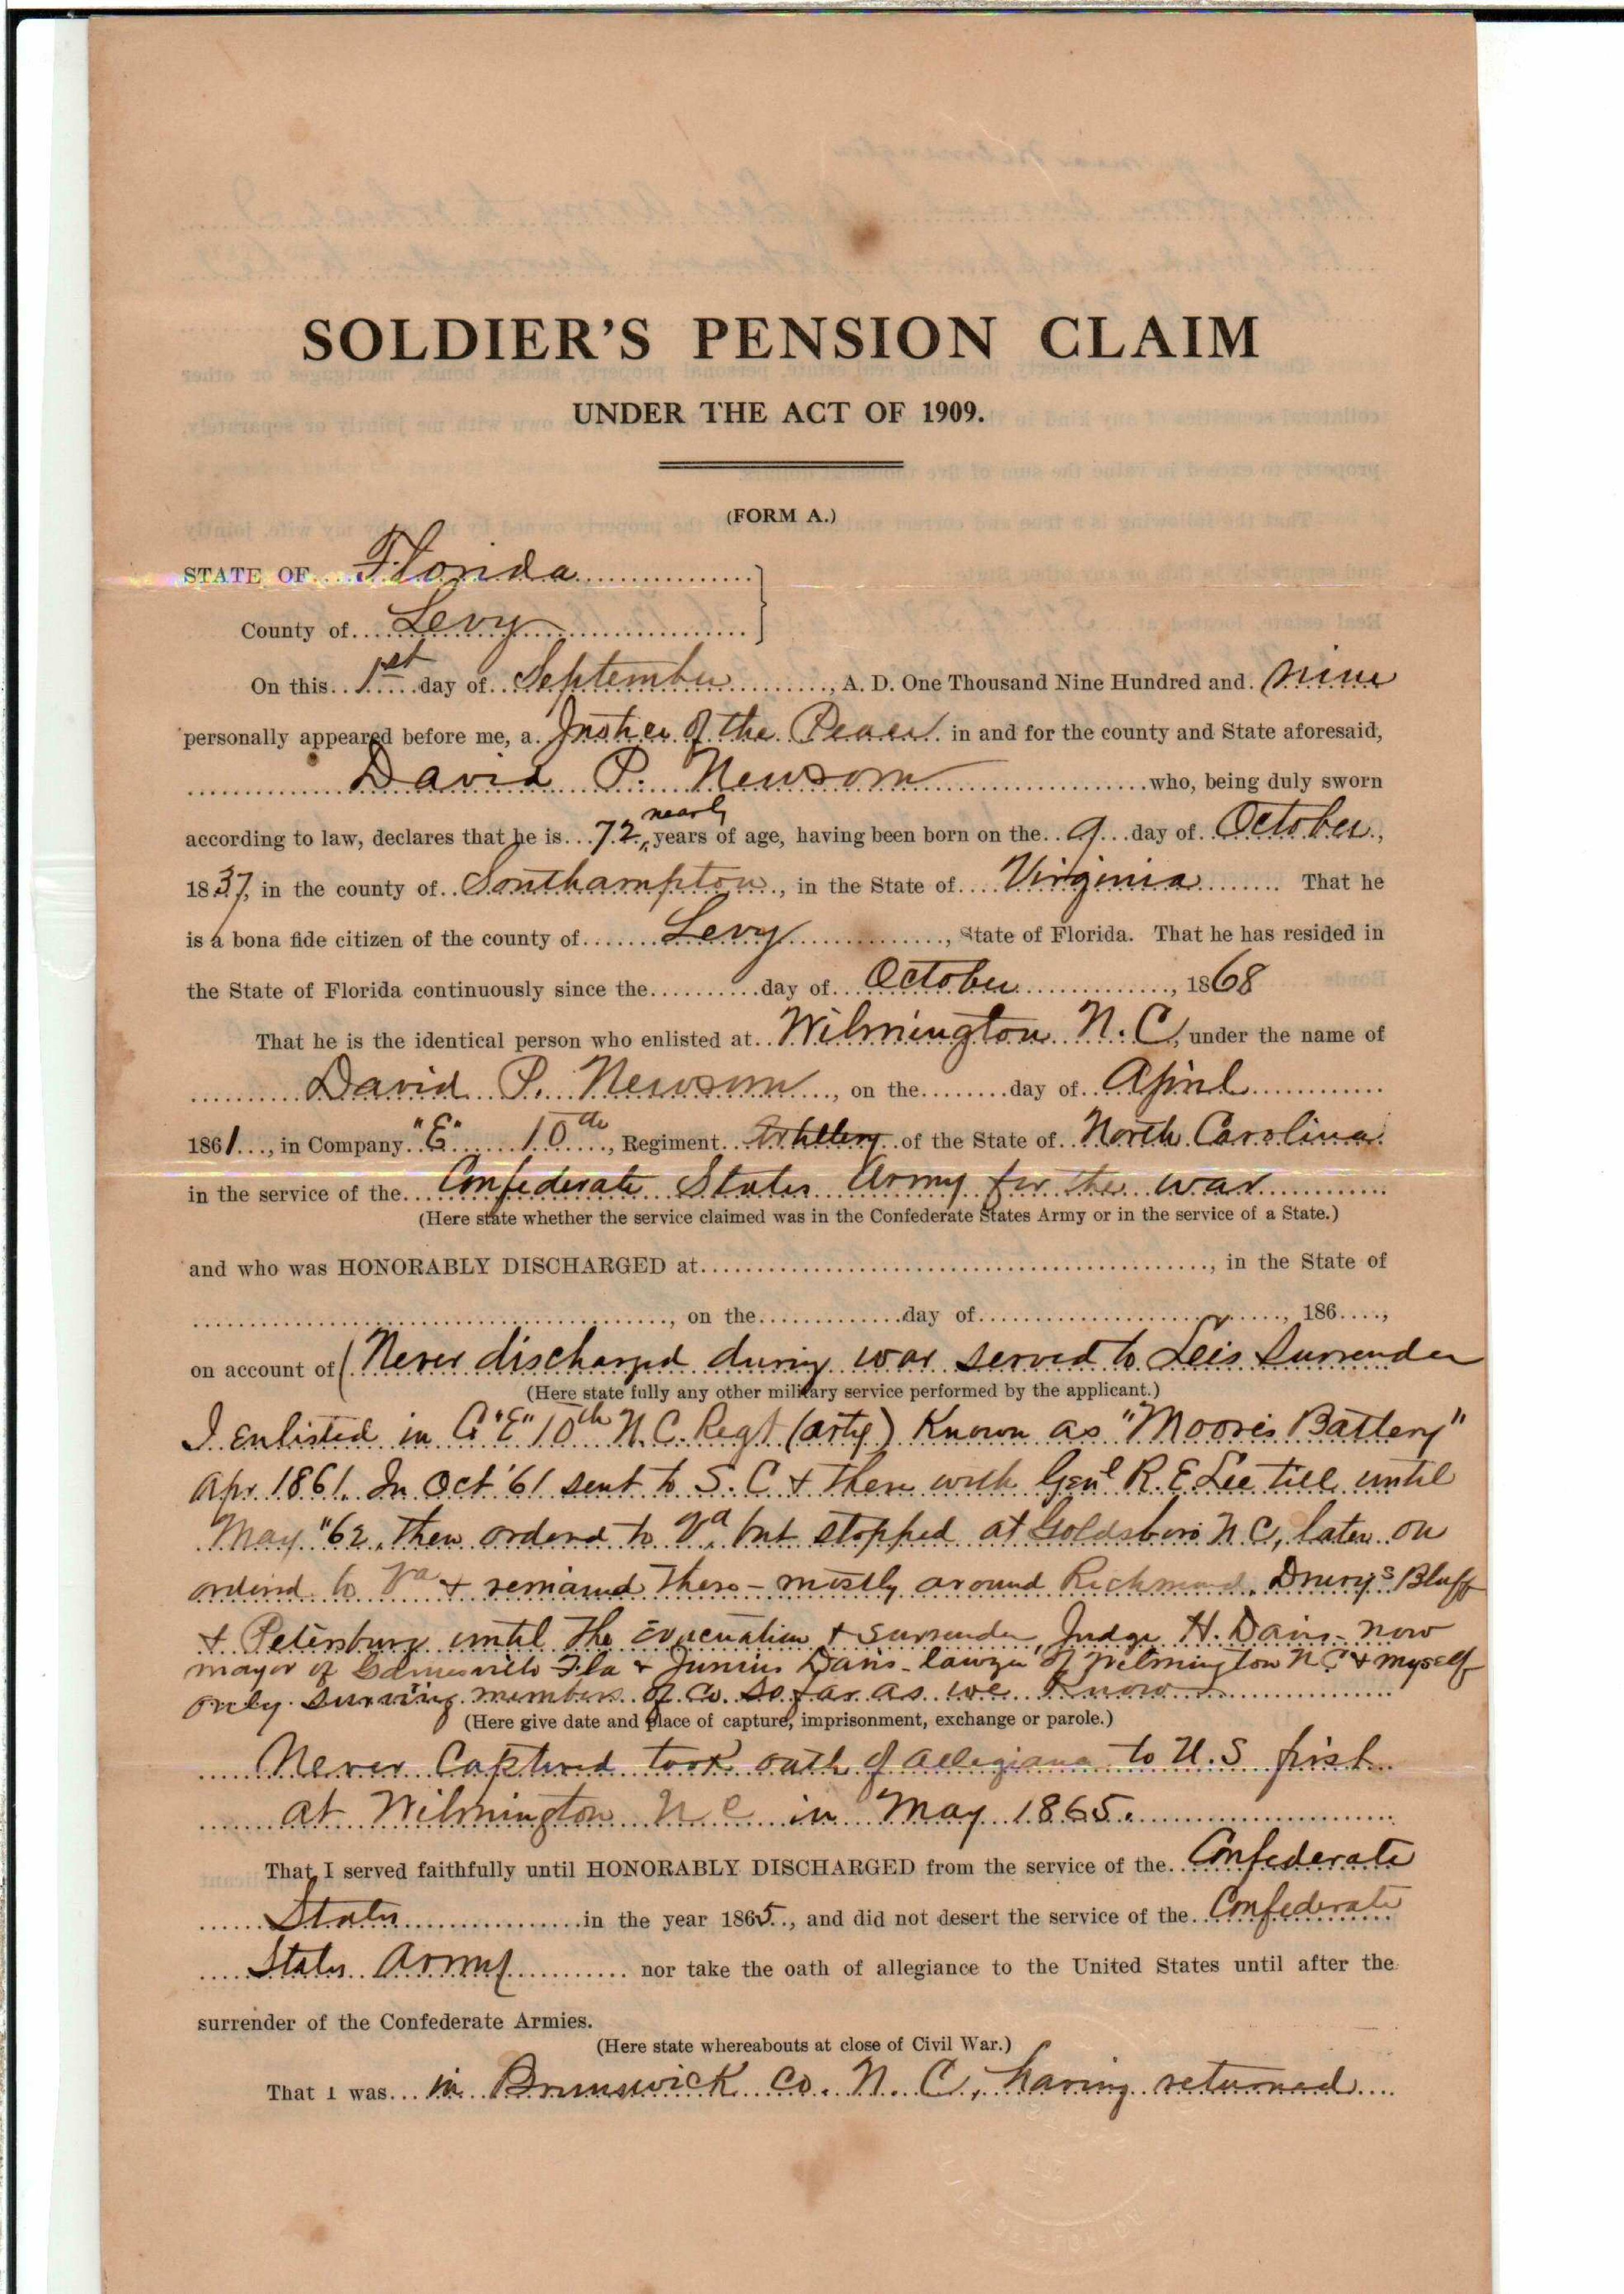 SOLDIER'S PENSION CLAIM
UNDER THE ACT OF 1909.
(FORM A.)
STATE OF Florida
County of Levy
On this 1st day of September, A. D. One Thousand Nine Hundred and nine
personally appeared before me, a Justice of the Peace in and for the county and State aforesaid,
David P. Newsom who, being duly sworn
nearly
according to law, declares that he is 72 years of age, having been born on the 9 day of October,
1837, in the county of Southampton, in the State of Virginia That he
is a bona fide citizen of the county of Levy, State of Florida. That he has resided in
the State of Florida continuously since the day of October, 1868
That he is the identical person who enlisted at Wilmington N. C, under the name of
David P. Newsom, on the day of April
1861, in Company "E" 10th, Regiment Artillery of the State of North Carolina
in the service of the Confederate States Army for the war
(Here state whether the service claimed was in the Confederate States Army or in the service of a State.)
and who was HONORABLY DISCHARGED at, in the State of
, on the day of, 186,
on account of (Never discharged during war served to Lee's Surrender
(Here state fully any other military service performed by the applicant.)
I enlisted in Co "E" 10th N.C. Regt (arty) Known as "Moore's Battery"
Apr. 1861. In Oct '61 sent to S. C & there with Genl R. E. Lee till until
May "62. then ordered to Va. but stopped at Goldsboro N C, later on
ordered to Va & remained there - mostly around Richmond. Drury's Bluff
& Petersburg until the Evacuation & Surrender, Judge H. Davis - now
mayor of Gainesville Fla & Junius Davis - lawyer of Wilmington N C & myself
only surviving members of Co so far as we know
(Here give date and place of capture, imprisonment, exchange or parole.)
Never Captured took oath of allegiance to U. S first
at Wilmington N C in May 1865.
That I served faithfully until HONORABLY DISCHARGED from the service of the Confederate
States in the year 1865, and did not desert the service of the Confederate
States Army nor take the oath of allegiance to the United States until after the
surrender of the Confederate Armies.
(Here state whereabouts at close of Civil War.)
That I was in Brunswick Co. N. C, having returned